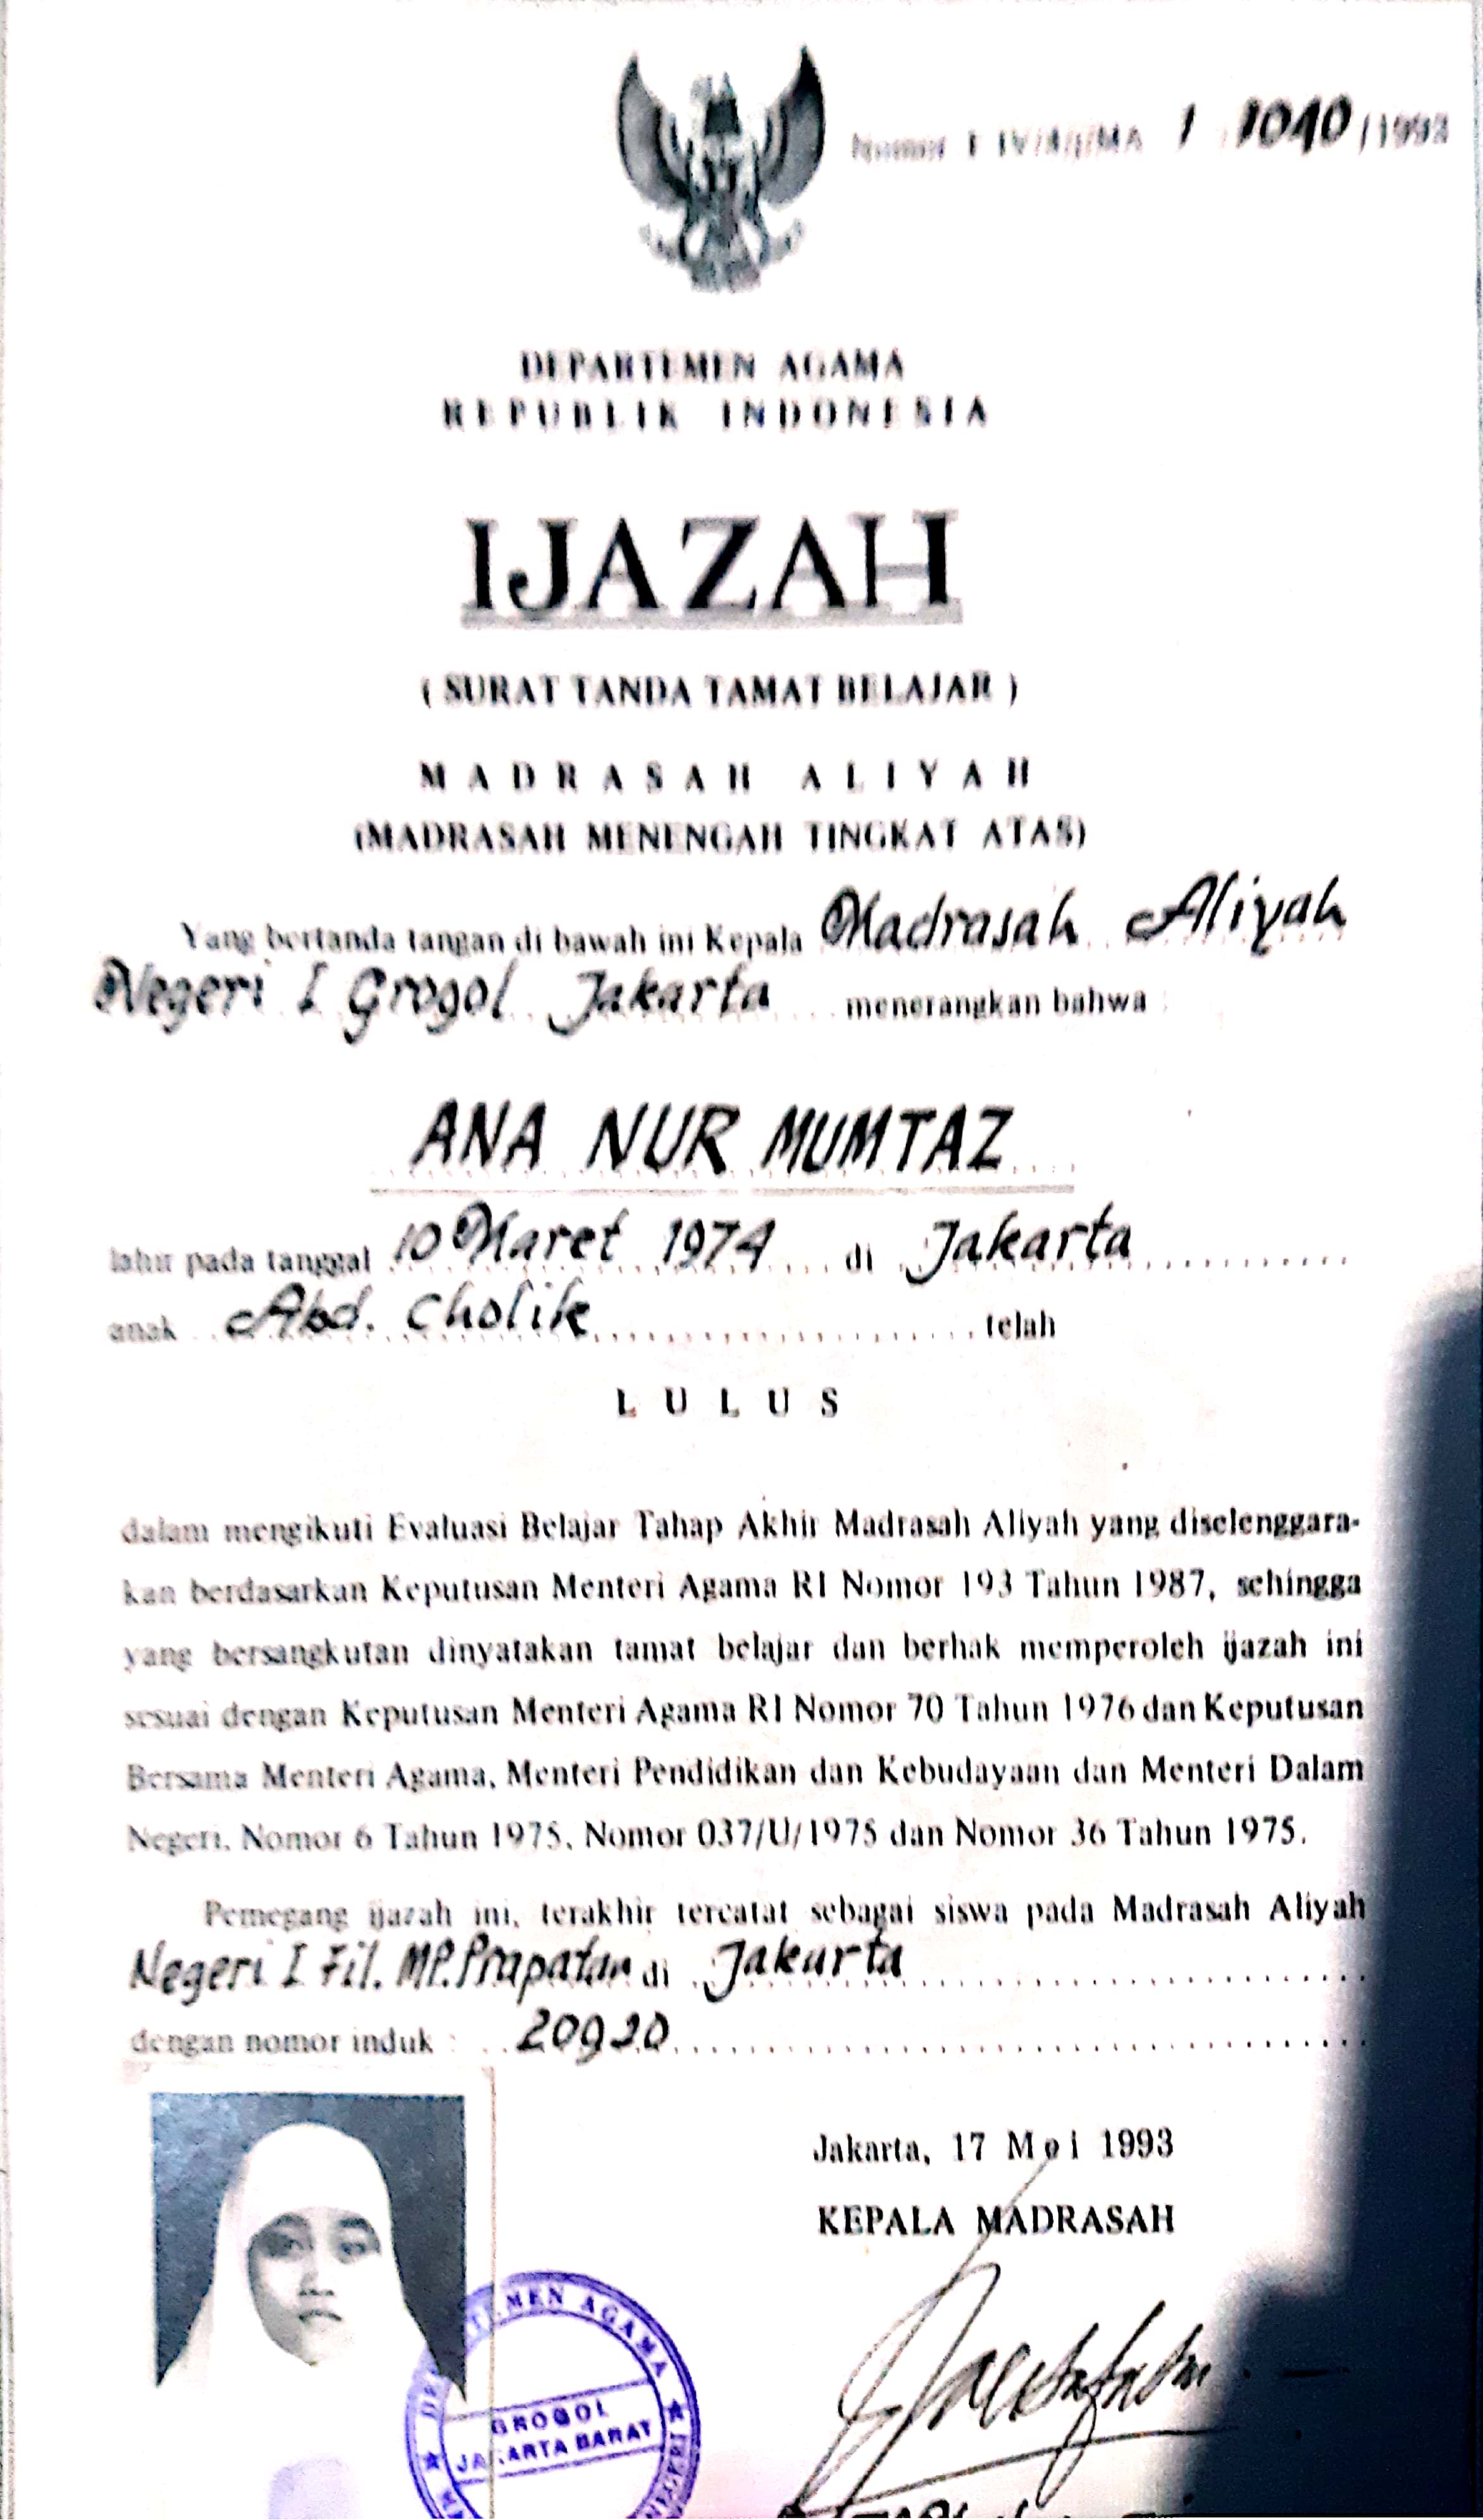 Nomor : IV/A/I/MA / 1040 /1993
DEPARTEMEN AGAMA
REPUBLIK INDONESIA
IJAZAH
( SURAT TANDA TAMAT BELAJAR )
MADRASAH ALIYAH
(MADRASAH MENENGAH TINGKAT ATAS)
Yang bertanda tangan di bawah ini Kepala Madrasah Aliyah
Negeri I Grogol Jakarta menerangkan bahwa :
ANA NUR MUMTAZ
lahir pada tanggal 10 Maret 1974 di Jakarta
anak Abd. Cholik telah
LULUS
dalam mengikuti Evaluasi Belajar Tahap Akhir Madrasah Aliyah yang diselenggara-
kan berdasarkan Keputusan Menteri Agama RI Nomor 193 Tahun 1987, sehingga
yang bersangkutan dinyatakan tamat belajar dan berhak memperoleh ijazah ini
sesuai dengan Keputusan Menteri Agama RI Nomor 70 Tahun 1976 dan Keputusan
Bersama Menteri Agama, Menteri Pendidikan dan Kebudayaan dan Menteri Dalam
Negeri, Nomor 6 Tahun 1975, Nomor 037/U/1975 dan Nomor 36 Tahun 1975.
Pemegang ijazah ini, terakhir tercatat sebagai siswa pada Madrasah Aliyah
Negeri I Fil. MP. Prapatan di Jakarta
dengan nomor induk : 20920
Jakarta, 17 Mei 1993
KEPALA MADRASAH
AGAMA
GROGOL
JAKARTA BARAT